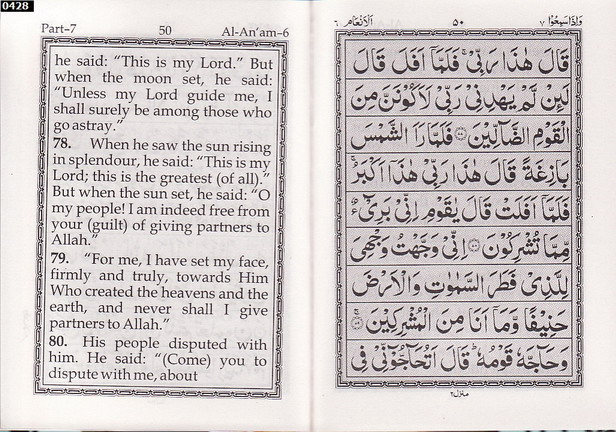 0428
Part-7 50 Al-An’am-6
he said: “This is my Lord.” But
when the moon set, he said:
“Unless my Lord guide me, I
shall surely be among those who
go astray.”
78. When he saw the sun rising
in splendour, he said: “This is my
Lord; this is the greatest (of all).”
But when the sun set, he said: “O
my people! I am indeed free from
your (guilt) of giving partners to
Allah.”
79. “For me, I have set my face,
firmly and truly, towards Him
Who created the heavens and the
earth, and never shall I give
partners to Allah.”
80. His people disputed with
him. He said: “(Come) you to
dispute with me, about
وَاِذَا سَمِعُوْا ٧ ٥٠ اَلْاَنْعَام ٦
قَالَ هٰذَا رَبِّیْ ۚ فَلَمَّاۤ اَفَلَ قَالَ
لَئِنْ لَّمْ یَهْدِنِیْ رَبِّیْ لَاَكُوْنَنَّ مِنَ
الْقَوْمِ الضَّآلِّیْنَ ۞ فَلَمَّا رَاَ الشَّمْسَ
بَازِغَةً قَالَ هٰذَا رَبِّیْ هٰذَاۤ اَكْبَرُ ۚ
فَلَمَّاۤ اَفَلَتْ قَالَ یٰقَوْمِ اِنِّیْ بَرِیْٓءٌ
مِّمَّا تُشْرِكُوْنَ ۞ اِنِّیْ وَجَّهْتُ وَجْهِیَ
لِلَّذِیْ فَطَرَ السَّمٰوٰتِ وَالْاَرْضَ
حَنِیْفًا وَّمَاۤ اَنَا مِنَ الْمُشْرِكِیْنَ ۞
وَحَآجَّهٗ قَوْمُهٗ ؕ قَالَ اَتُحَآجُّوْٓنِّیْ فِی
منزل ٢